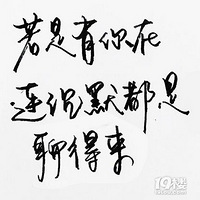 若是有你在
连沉默都是
聊得来
19楼